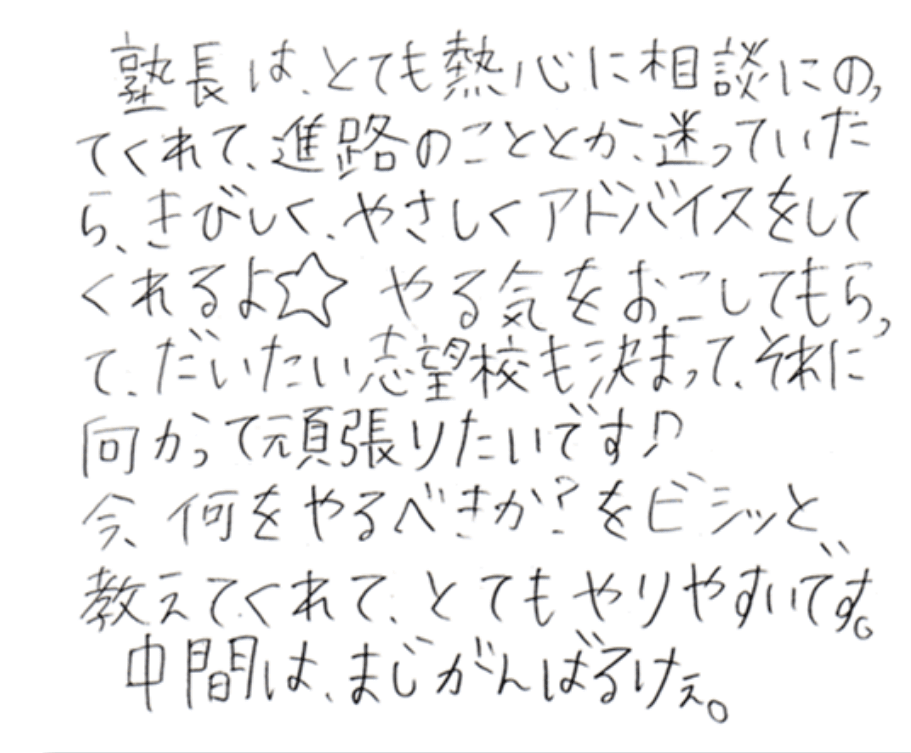 塾長は、とても熱心に相談にのっ
てくれて、進路のこととか、迷っていた
ら、きびしく、やさしくアドバイスをして
くれるよ☆ やる気をおこしてもらっ
て、だいたい志望校も決まって、それに
向かって頑張りたいです♪
今、何をやるべきか?をビシッと
教えてくれて、とてもやりやすいです。
中間は、まじがんばるけぇ。